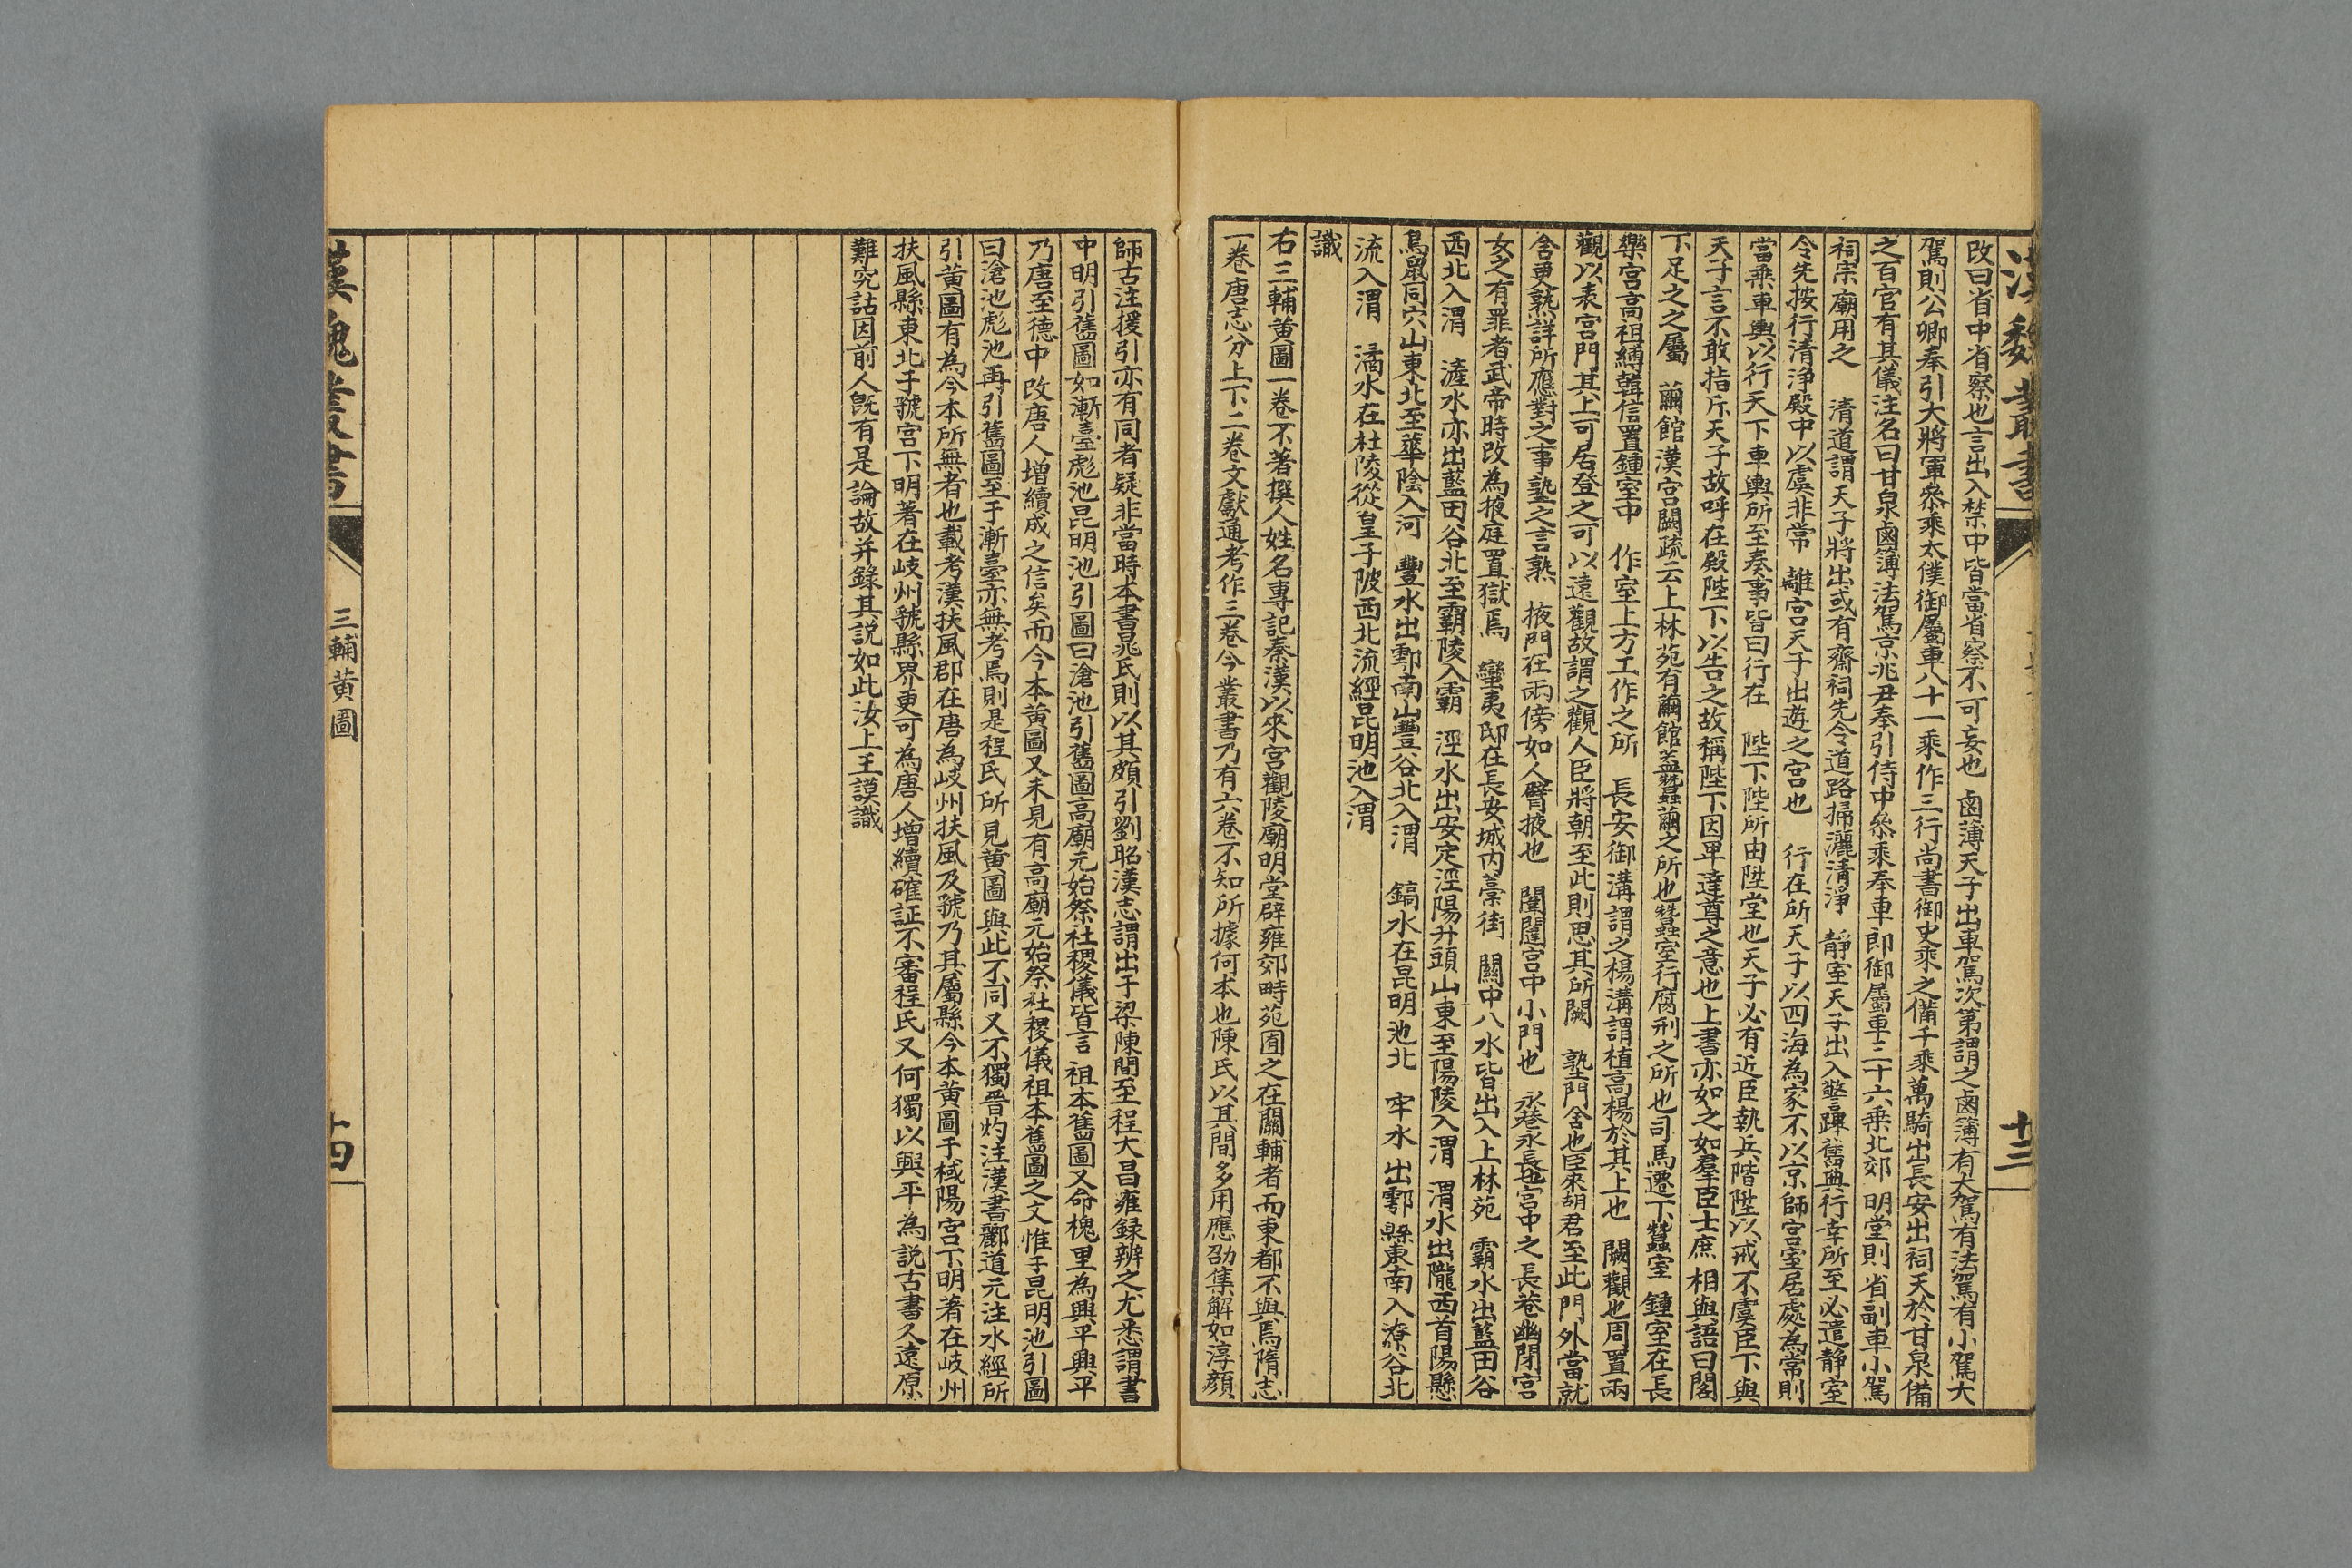 漢魏叢書
十三
改曰省中省察也言出入禁中皆當省察不可妄也 鹵薄天子出車駕次第謂之鹵簿有大駕有法駕有小駕大
駕則公卿奉引大將軍叅乘太僕御屬車八十一乘作三行尚書御史乘之備千乘萬騎出長安出祠天於甘泉備
之百官有其儀注名曰甘泉鹵簿法駕京兆尹奉引侍中叅乘奉車郎御屬車三十六乗北郊 明堂則省副車小駕
祠宗廟用之 清道謂天子將出或有齋祠先令道路掃灑清淨 靜室天子出入警蹕舊典行幸所至必遣靜室
令先按行清淨殿中以虞非常 離宮天子出遊之宮也 行在所天子以四海為家不以京師宮室居處為常則
當乗車輿以行天下車輿所至奏事皆曰行在 陛下陛所由陞堂也天子必有近臣執兵階陛以戒不虞臣下與
天子言不敢指斥天子故呼在殿陛下以告之故稱陛下因卑達尊之意也上書亦如之如羣臣士庶相與語曰閣
下足之之屬 繭館漢宮闕疏云上林苑有繭館蓋蠶繭之所也蠶室行腐刑之所也司馬遷下蠶室 鍾室在長
樂宮高祖縛韓信置鍾室中 作室上方工作之所 長安御溝謂之楊溝謂植高楊於其上也 闕觀也周置兩
觀以表宮門其上可居登之可以遠觀故謂之觀人臣將朝至此則思其所闕 塾門舍也臣來朝君至此門外當就
舍更熟詳所應對之事塾之言熟 掖門在兩傍如人臂掖也 闈闥宮中小門也 永巷永長也宮中之長巷幽閉宮
女之有罪者武帝時改為掖庭置獄焉 蠻夷邸在長安城内藁街 關中八水皆出入上林苑 霸水出藍田谷
西北入渭 滻水亦出藍田谷北至霸陵入霸 涇水出安定涇陽幵頭山東至陽陵入渭 渭水出隴西首陽縣
鳥鼠同穴山東北至華陰入河 豐水出鄠南山豐谷北入渭 鎬水在昆明池北 牢水出鄠縣東南入潦谷北
流入渭 潏水在杜陵從皇子陂西北流經昆明池入渭
識
右三輔黃圖一卷不著撰人姓名專記秦漢以來宮觀陵廟明堂辟雍郊畤苑囿之在關輔者而東都不與焉隋志
一卷唐志分上下二卷文獻通考作三卷今叢書乃有六卷不知所據何本也陳氏以其間多用應劭集解如淳顔
師古注援引亦有同者疑非當時本書晁氏則以其頗引劉昭漢志謂出于梁陳間至程大昌雍録辨之尤悉謂書
中明引舊圖如漸臺彪池昆明池引圖曰滄池引舊圖高廟元始祭社稷儀皆言祖本舊圖又命槐里為興平興平
乃唐至德中改唐人增續成之信矣而今本黄圖又未見有高廟元始祭社稷儀祖本舊圖之文惟于昆明池引圖
曰滄池彪池再引舊圖至于漸臺亦無考焉則是程氏所見黄圖與此不同又不獨晋灼注漢書酈道元注水經所
引黄圖有為今本所無者也載考漢扶風郡在唐為岐州扶風及虢乃其屬縣今本黄圖于棫陽宮下明著在岐州
扶風縣東北于虢宮下明著在岐州虢縣界更可為唐人增續確証不審程氏又何獨以興平為説古書久遠原
難究詰因前人既有是論故并錄其説如此汝上王謨識
漢魏叢書
三輔黄圖
十四